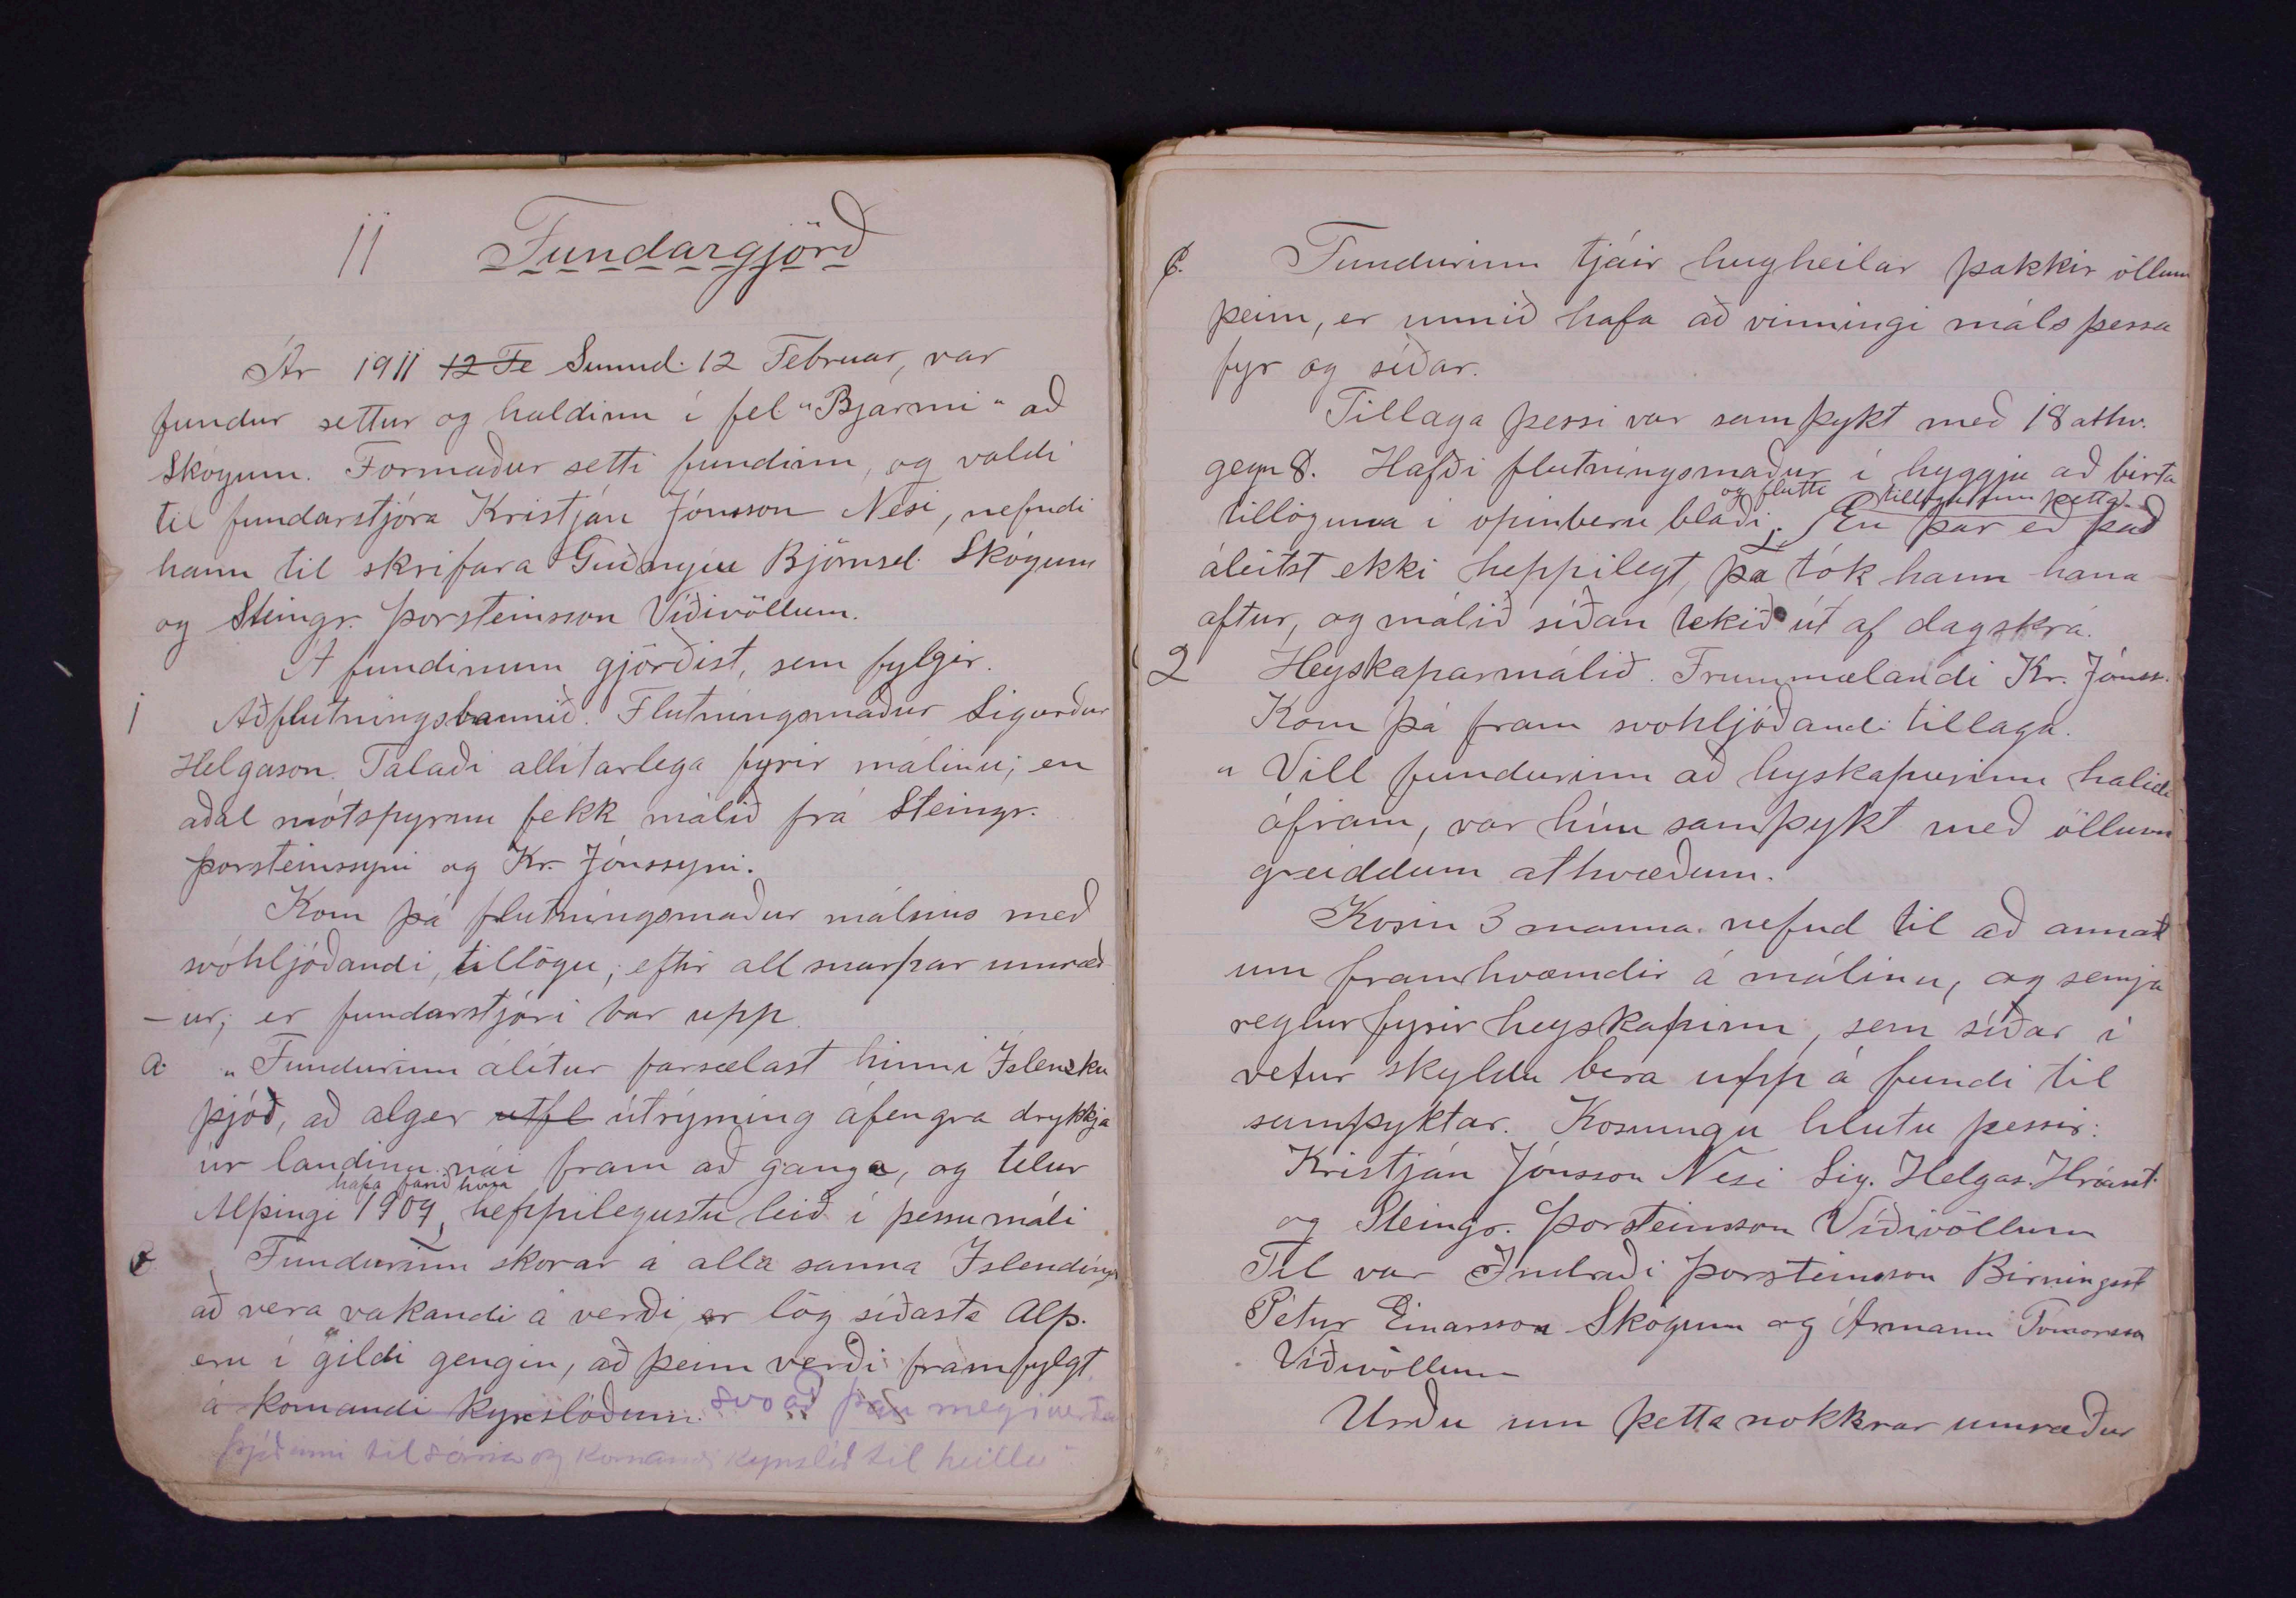 11 Fundargjörð
Ár 1911 12 Fe Sunnd. 12 Februar, var
fundur settur og haldinn í fel "Bjarmi" að
Skógum. Formaður setti fundinn, og valdi
til fundarstjóra Kristján Jónsson Nesi, nefndi
hann til skrifara Guðnýu Björnsd. Skógum
og Steingr. Þorsteinsson Víðivöllum.
Á fundinum gjörðist, sem fylgir.
1 Aðflutningsbannið. Flutningsmaður Sigurður
Helgason. Talaði allítarlega fyrir málinu; en
aðal mótspyrnu fekk málið frá Steingr.
Þorsteinssyni og Kr. Jónssyni.
Kom þá flutningsmaður málsins með
svohljóðandi, tillögu; eftir all snarpar umræð
-ur; er fundarstjóri bar upp
a. "Fundurinn álítur farsælast hinni Íslenzku
þjóð, að alger utfl útrýming áfengra drykkja
úr landinu nái fram að ganga, og telur
hafa farið hina
Alþingi 1909, heppilegustu leið í þessu máli
b. Fundurinn skorar á alla sanna Íslendinga
að vera vakandi á verði er lög síðasta Alþ.
eru í gildi gengin, að þeim verði framfylgt
á komandi kynslóðum. svo að þau megi verða
þjóðinni til sóma og komandi kynslóð til heilla"
c. Fundurinn tjáir hugheilar þakkir öllum
þeim, er unnið hafa að vinningi máls þessa
fyr og síðar.
Tillaga þessi var samþykt með 18 athv.
gegn 8. Hafði flutningsmaður í hyggju að birta
og flutti tillögu um þetta.
tillöguna í opinberu blaði. En þar eð það
áleitst ekki heppilegt, þá tók hann hana
aftur, og málið síðan tekið út af dagskrá.
2 Heyskaparmálið. Frummælandi Kr. Jónss.
Kom þá fram svohljóðandi tillaga.
" Vill fundurinn að hyskapurinn haldi
áfram, var hún samþykt með öllum
greiddum athvæðum.
Kosin 3 manna nefnd til að annast
um framhvæmdir á málinu, og semja
reglur fyrir heyskapinn, sem síðar í
vetur skyldu bera upp á fundi til
samþyktar. Kosningu hlutu þessir:
Kristján Jónsson Nesi Sig. Helgas. Hróarst.
og Steingr. Þorsteinsson Víðivöllum
Til var Indriði Þorsteinsson Birningsst
Pétur Einarsson Skógum og Ármann Tómasson
Víðivöllum
Urðu um þetta nokkrar umræður